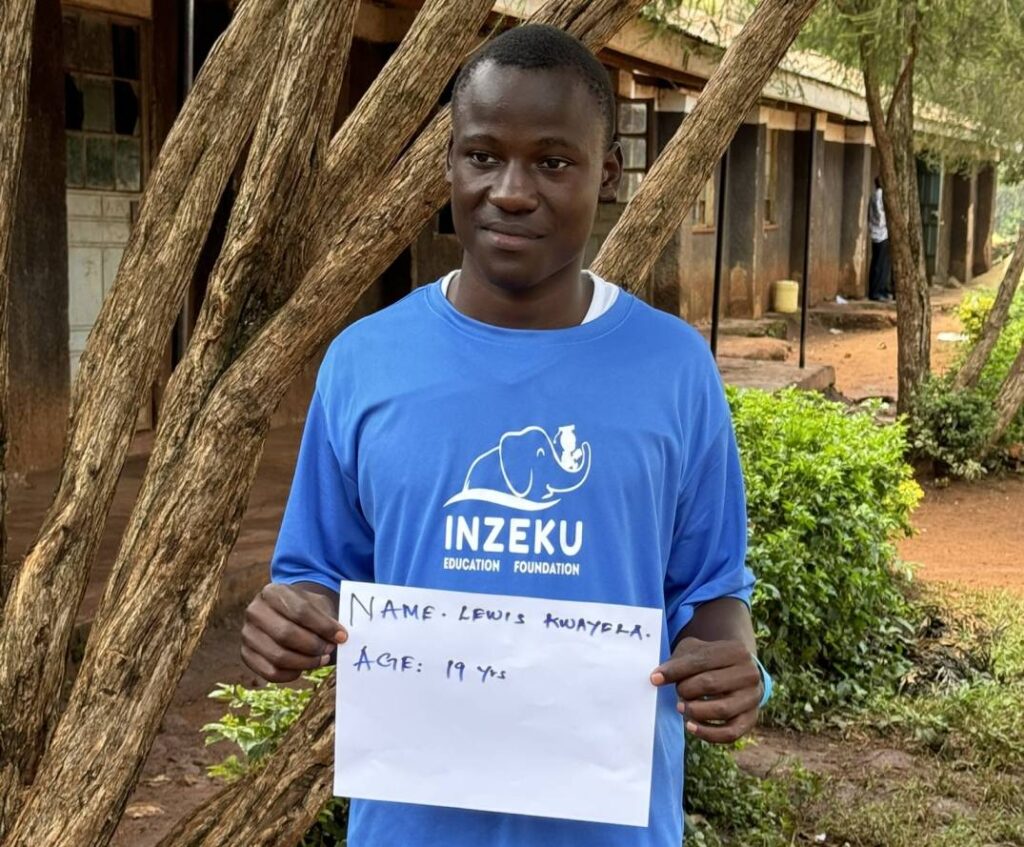 INZEKU
EDUCATION FOUNDATION
NAME. LEWIS KWAYELA.
AGE: 19 Yrs